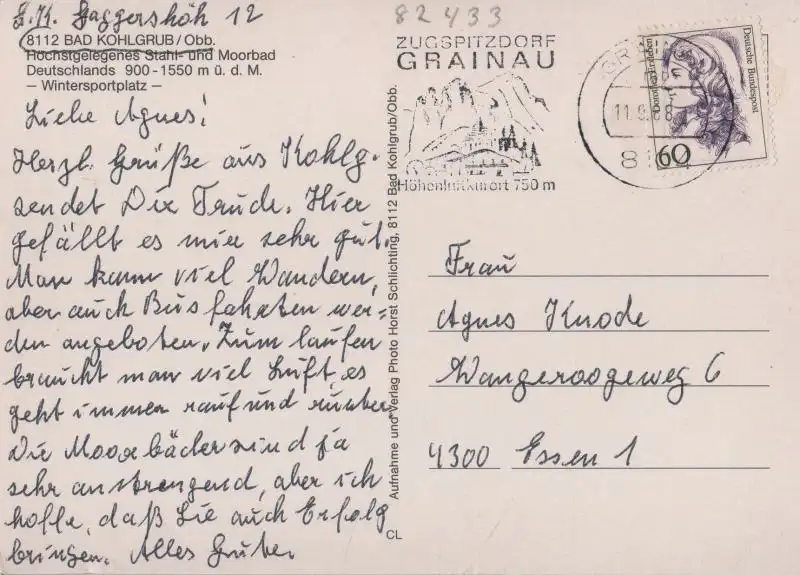 Gaggershöh 12
8112 BAD KOHLGRUB/Obb.
Höchstgelegenes Stahl- und Moorbad
Deutschlands 900-1550 m ü. d. M.
– Wintersportplatz –
Liebe Agnes!
Herzl. Grüße aus Kohlg.
sendet Dir Trude. Hier
gefällt es mir sehr gut.
Man kann viel Wandern,
aber auch Busfahrten wer=
den angeboten. Zum laufen
braucht man viel Luft, es
geht immer rauf und runter
Die Moorbäder sind ja
sehr anstrengend, aber ich
hoffe, daß Sie auch Erfolg
bringen. Alles Gute.
Aufnahme und Verlag Photo Horst Schlichting, 8112 Bad Kohlgrub/Obb.
CL
82433
ZUGSPITZDORF
GRAINAU
Höhenluftkurort 750 m
11.9.88
Dorothea Erxleben
Deutsche Bundespost
60
Frau
Agnes Knode
Wangeroogeweg 6
4300 Essen 1